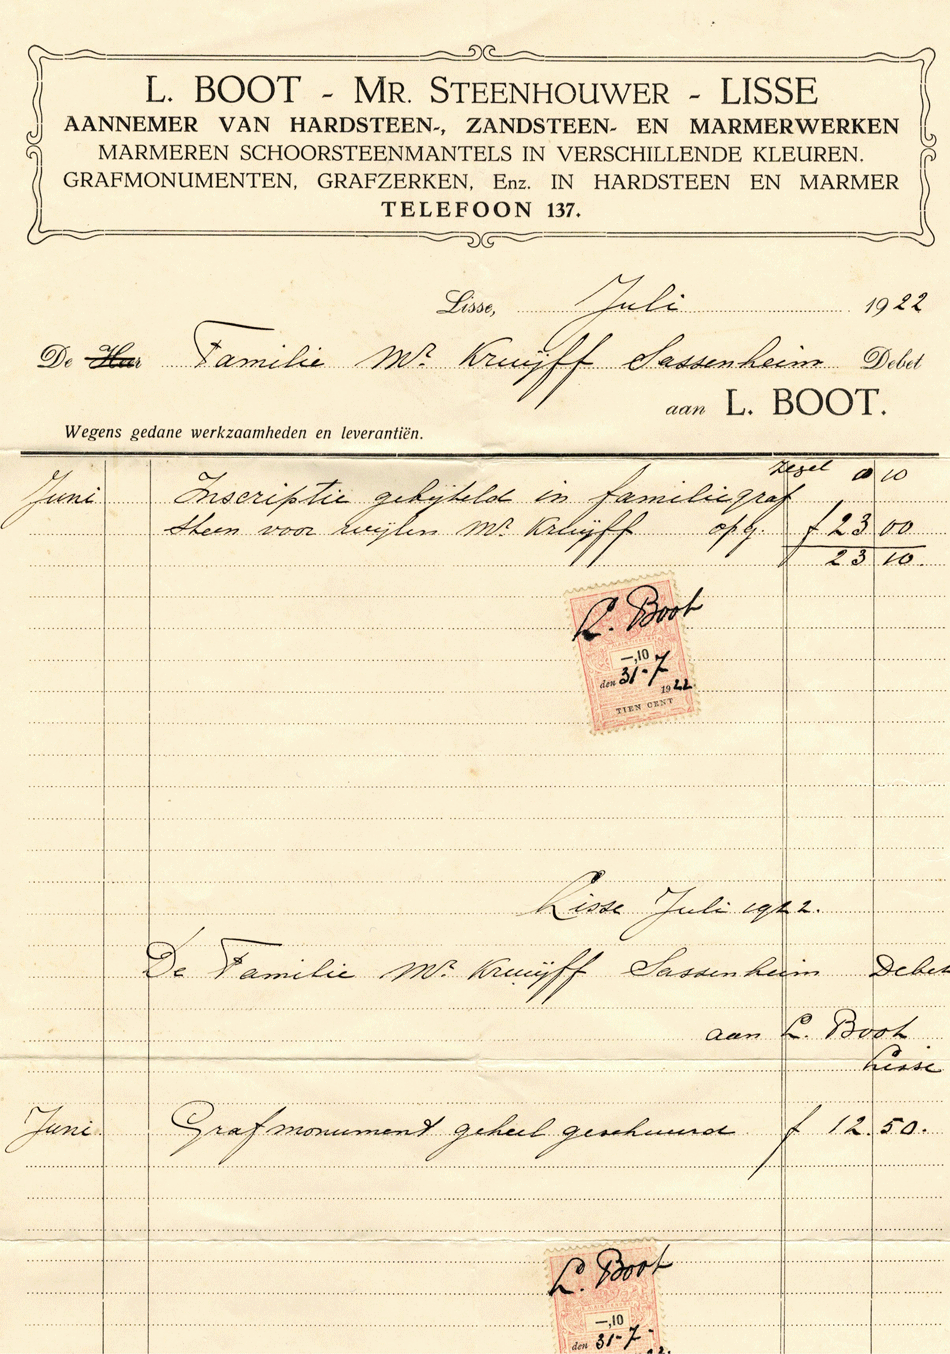 L. BOOT - MR. STEENHOUWER - LISSE
AANNEMER VAN HARDSTEEN-, ZANDSTEEN- EN MARMERWERKEN
MARMEREN SCHOORSTEENMANTELS IN VERSCHILLENDE KLEUREN.
GRAFMONUMENTEN, GRAFZERKEN, Enz. IN HARDSTEEN EN MARMER
TELEFOON 137.
Lisse, Juli 1922
De Familie Mr. Kruijff Sassenheim Debet
aan L. BOOT.
Wegens gedane werkzaamheden en leverantiën.
zegel 0 10
Juni Inscriptie gebijteld in familiegraf
steen voor wijlen Mr. Kruijff opg. f 23 00
23 10.
L. Boot
—,10
den 31-7
1922.
TIEN CENT
Lisse Juli 1922.
De Familie Mr. Kruijff Sassenheim Debet
aan L. Boot
Lisse
Juni Grafmonument geheel geschuurd f 12.50.
L. Boot
—,10
den 31-7-